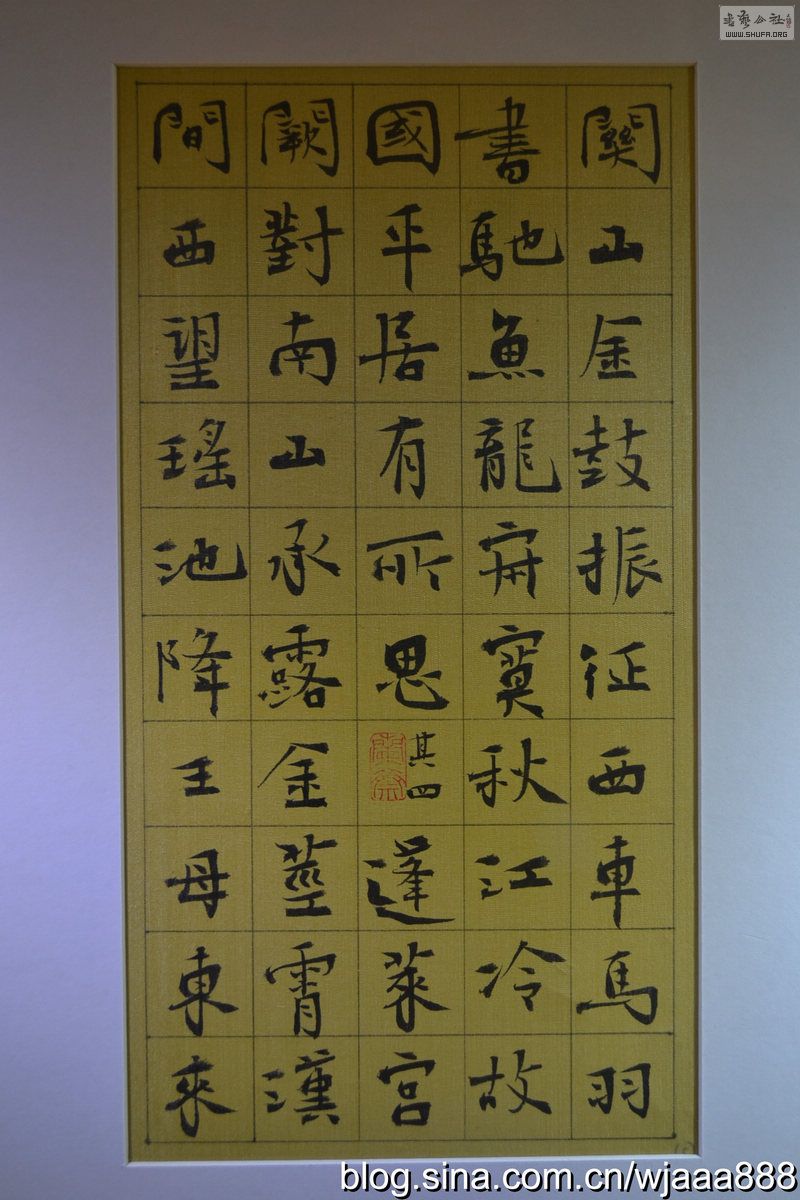 關山金鼓振征西車馬羽
書馳魚龍寂寞秋江冷故
國平居有所思其四蓬萊宮
闕對南山承露金莖霄漢
間西望瑤池降王母東來
WWW.SHUFA.ORG
blog.sina.com.cn/wjaaa888